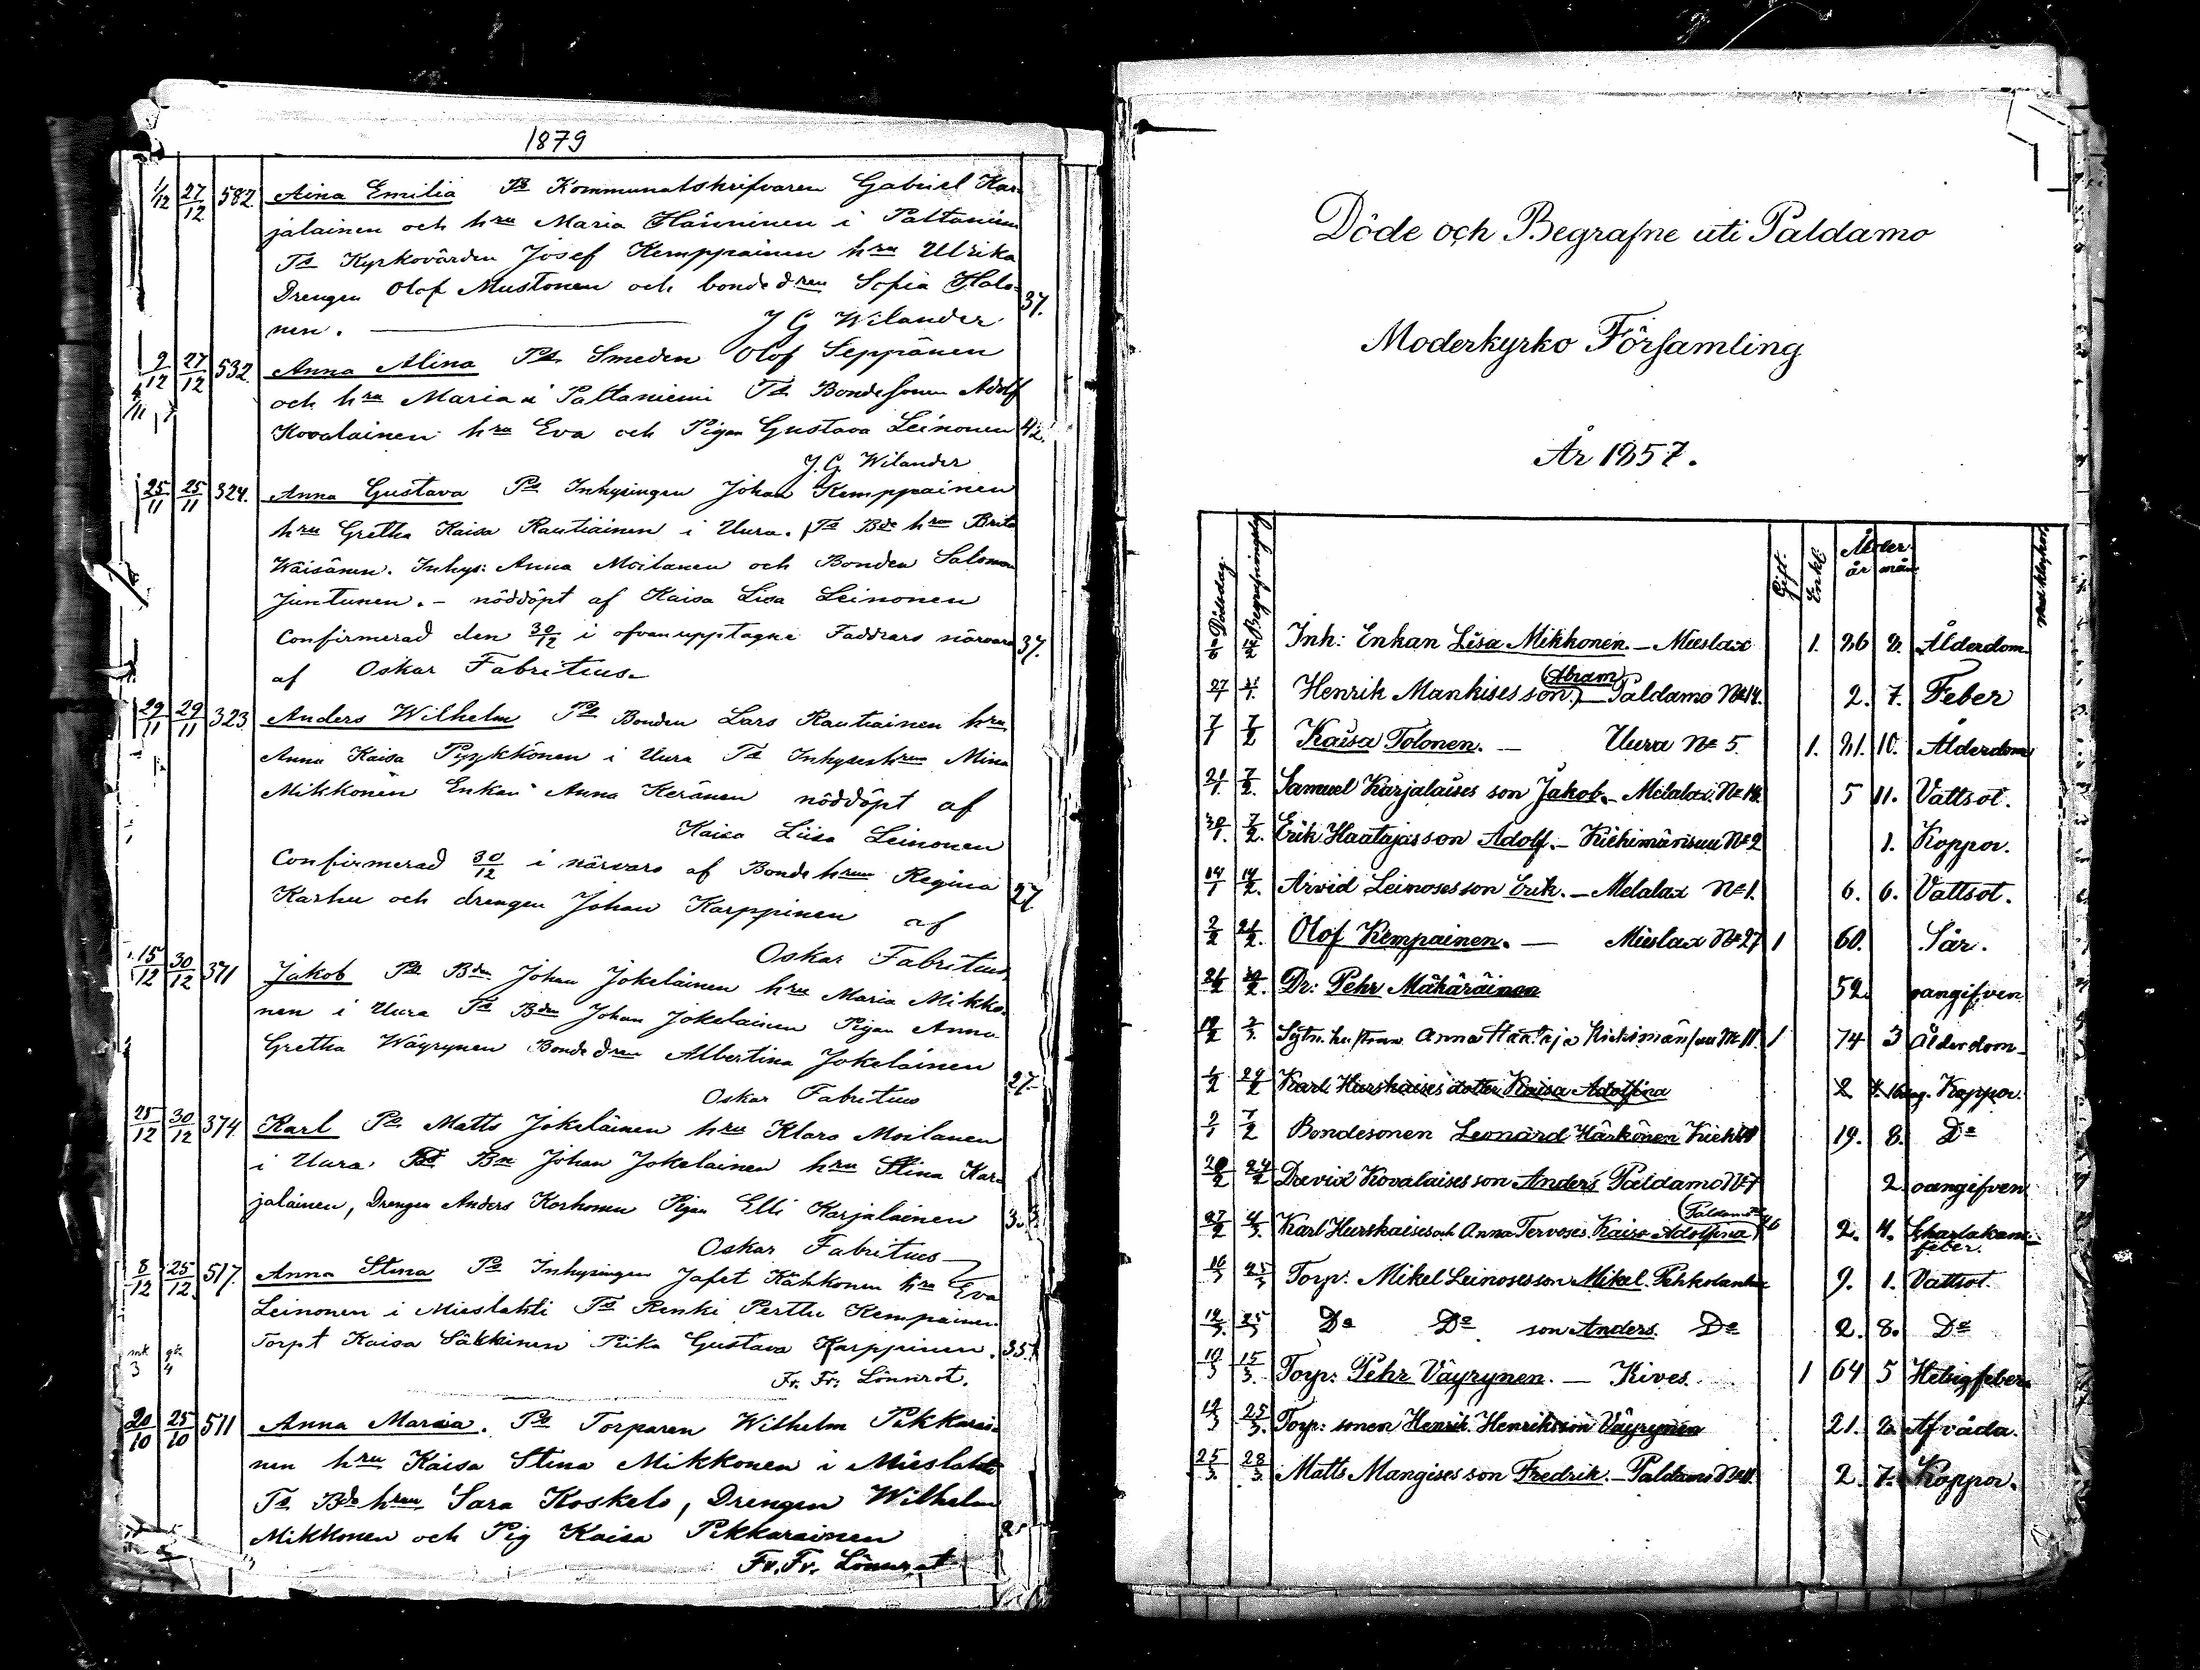 1879
1/12 27/12 582 Aina Emilia Ps Kommunalskrifvaren Gabriel Kar-
jalainen och hru Maria Hänninen i Paltaniemi
Ts Kyrkovärden Josef Kemppainen hru Ulrika
Drengen Olof Mustonen och bonde dren Sofia Halo-
nen. 37.
J G Wilander
9/12 27/12 532. Anna Alina Ps Smeden Olof Seppänen
och hru Maria i Paltaniemi Ts Bondesonen Adolf
Kovalainen hru Eva och Pigan Gustava Leinonen 42.
J. G. Wilander
25/11 25/11 324. Anna Gustava Ps Inhysingen Johan Kemppainen
hru Gretha Kaisa Rautiainen i Uura. Ts Bde hru Brita
Wäisänen. Inhys: Anna Moilanen och Bonden Salomon
Juntunen. – nöddöpt af Kaisa Lisa Leinonen
Confirmerad den 30/12 i ofvanupptagne Faddrars närvaro 37.
af Oskar Fabritius
29/11 29/11 323 Anders Wilhelm Ps Bonden Lars Rautiainen hru
Anna Kaisa Pyykkönen i Uura Ts Inhyseshrun Mina
Mikkonen Enkan Anna Keränen nöddöpt af
Kaisa Liisa Leinonen
Confirmerad 30/12 i närvaro af Bonde hrun Regina
Karhu och drengen Johan Karppinen af 27
Oskar Fabritius
15/12 30/12 371 Jakob Ps Bdn Johan Jokelainen hru Maria Mikko-
nen i Uura Ts Bdn Johan Jokelainen Pigan Anna
Gretha Wäyrynen Bonde dren Albertina Jokelainen
27.
Oskar Fabritius
25/12 30/12 374 Karl Ps Matts Jokeläinen hru Klara Moilanen
i Uura Ts Bn Johan Jokelainen hru Stina Kar-
jalainen, Drengen Anders Korhonen Pigan Elli Karjalainen
Oskar Fabritius
8/12 25/12 517. Anna Stina Ps Inhysingen Jafet Kähkonen hru Eva
Leinonen i Mieslahti Ts Renki Perttu Kempainen
Torpt Kaisa Säkkinen Piika Gustava Karppinen. 35
Fr. Fr. Lönnrot.
20/10 25/10 511 Anna Maria. Ps Torparen Wilhelm Pikkarai-
nen hru Kaisa Stina Mikkonen i Mieslahti
Ts Bde hrun Sara Koskelo, Drengen Wilhelm
Mikkonen och Pig Kaisa Pikkarainen
Fr. Fr. Lönnrot
Döde och Begrafne uti Paldamo
Moderkyrko Församling
År 1857.
Dödsdag Begrafningsdag Gift. Enkl. Ålder. år mån
Inh: Enkan Lisa Mikkonen. – Mieslax 1. 86 8. Ålderdom
Henrik Mankises son (Abram) – Paldamo No 14. 2. 7. Feber
7/1 7/2 Kaisa Tolonen. – Uura No 5. 1. 81. 10. Ålderdom
21/1 7/2. Samuel Karjalaises son Jakob. – Melalax. No 18. 5 11. Vattsot.
30/1. 7/2. Erik Haatajas son Adolf. – Kiehimänsuu No 2 1. Koppor.
14/1 14/2. Arvid Leinoses son Erik. – Melalax No 1. 6. 6. Vattsot.
2/2 21/2. Olof Kempainen. – Mieslax No 27 1 60. Sår.
Dr: Pehr Mähäräinen 52. oangifven
Sytn. hustrun Anna Haataja Kiehimänsuu No 11. 1 74 3 Ålderdom
1/2 Karl Hurskaises dotter Kaisa Adolfina 2 Koppor.
7/2 Bondesonen Leonard Härkönen 19. 8. Do
David Kovalaises son Anders Paldamo No 7 2. oangifven
27/2 4/3. Karl Hurskaises och Anna Tervoses Kaisa Adolfina (Paldamo 2. 4. Scharlakans-
feber.
16/3 25/3 Torp. Mikel Leinoses son Mikel. Pehkolanlax 9. 1. Vattsot.
19/3. 25/3 Do Do son Anders. Do 2. 8. Do
10/3 15/3. Torp: Pehr Väyrynen. – Kives. 1 64 5 Hetsigfeber
19/3 25/3. Torp: sonen Henrik Henriksson Väyrynen 21. 2. Af våda.
25/3. 28/3 Matts Mangises son Fredrik. – Paldamo No 11. 2. 7. Koppor.